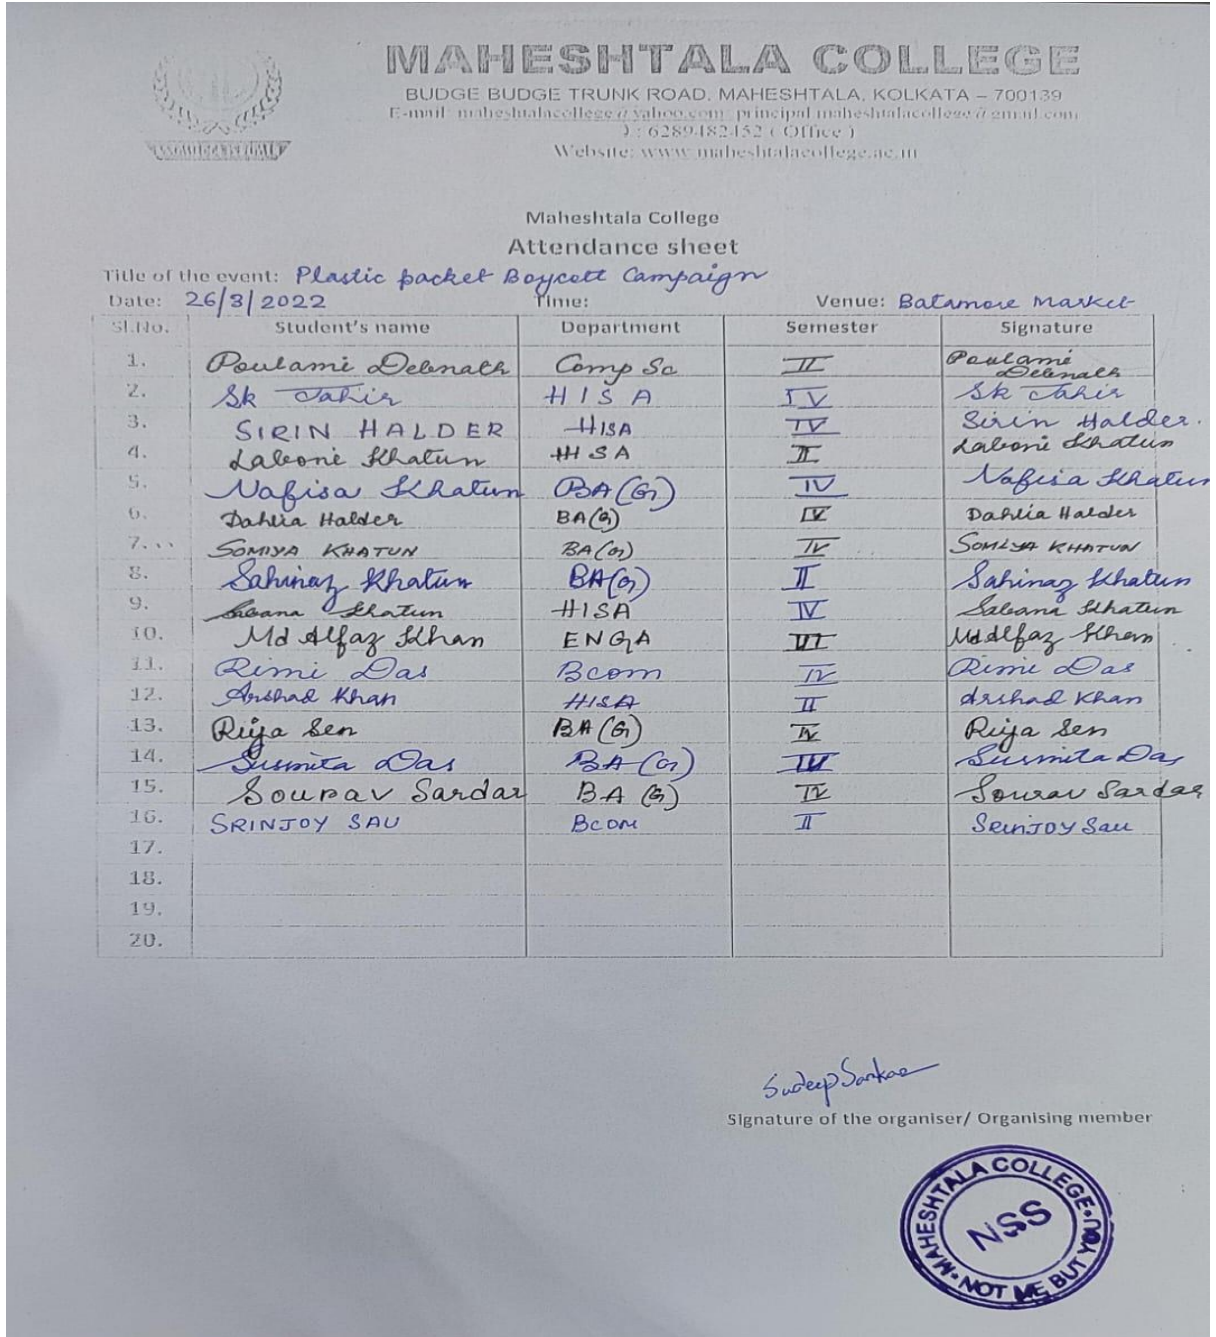 MAHESHTALA COLLEGE
BUDGE BUDGE TRUNK ROAD, MAHESHTALA, KOLKATA – 700139
E-mail: maheshtalacollege@yahoo.com, principal.maheshtalacollege@gmail.com
: 6289482452 ( Office )
Website: www.maheshtalacollege.ac.in
Maheshtala College
Attendance sheet
Title of the event: Plastic packet Boycott Campaign
Date: 26/8/2022 Time: Venue: Batamore Market
Sl.No. Student's name Department Semester Signature
1. Poulami Debnath Comp Sc II Poulami Debnath
2. Sk Tahir HISA IV Sk Tahir
3. SIRIN HALDER HISA IV Sirin Halder.
4. Laboni Khatun HISA II Laboni Khatun
5. Nafisa Khatun BA(G) IV Nafisa Khatun
6. Dahlia Halder BA(G) IV Dahlia Halder
7. SOMIYA KHATUN BA(G) IV SOMIYA KHATUN
8. Sahinaz Khatun BA(G) II Sahinaz Khatun
9. Sabana Khatun HISA IV Sabana Khatun
10. Md Alfaz Khan ENGA VI Md Alfaz Khan
11. Rimi Das Bcom IV Rimi Das
12. Arshad Khan HISA II Arshad Khan
13. Riya Sen BA(G) IV Riya Sen
14. Susmita Das BA(G) IV Susmita Das
15. Sourav Sardar BA (G) IV Sourav Sardar
16. SRINJOY SAU BCOM II SRINJOY Sau
17.
18.
19.
20.
Sudeep Sarkar
Signature of the organiser/ Organising member
MAHESHTALA COLLEGE
NSS
NOT ME, BUT YOU